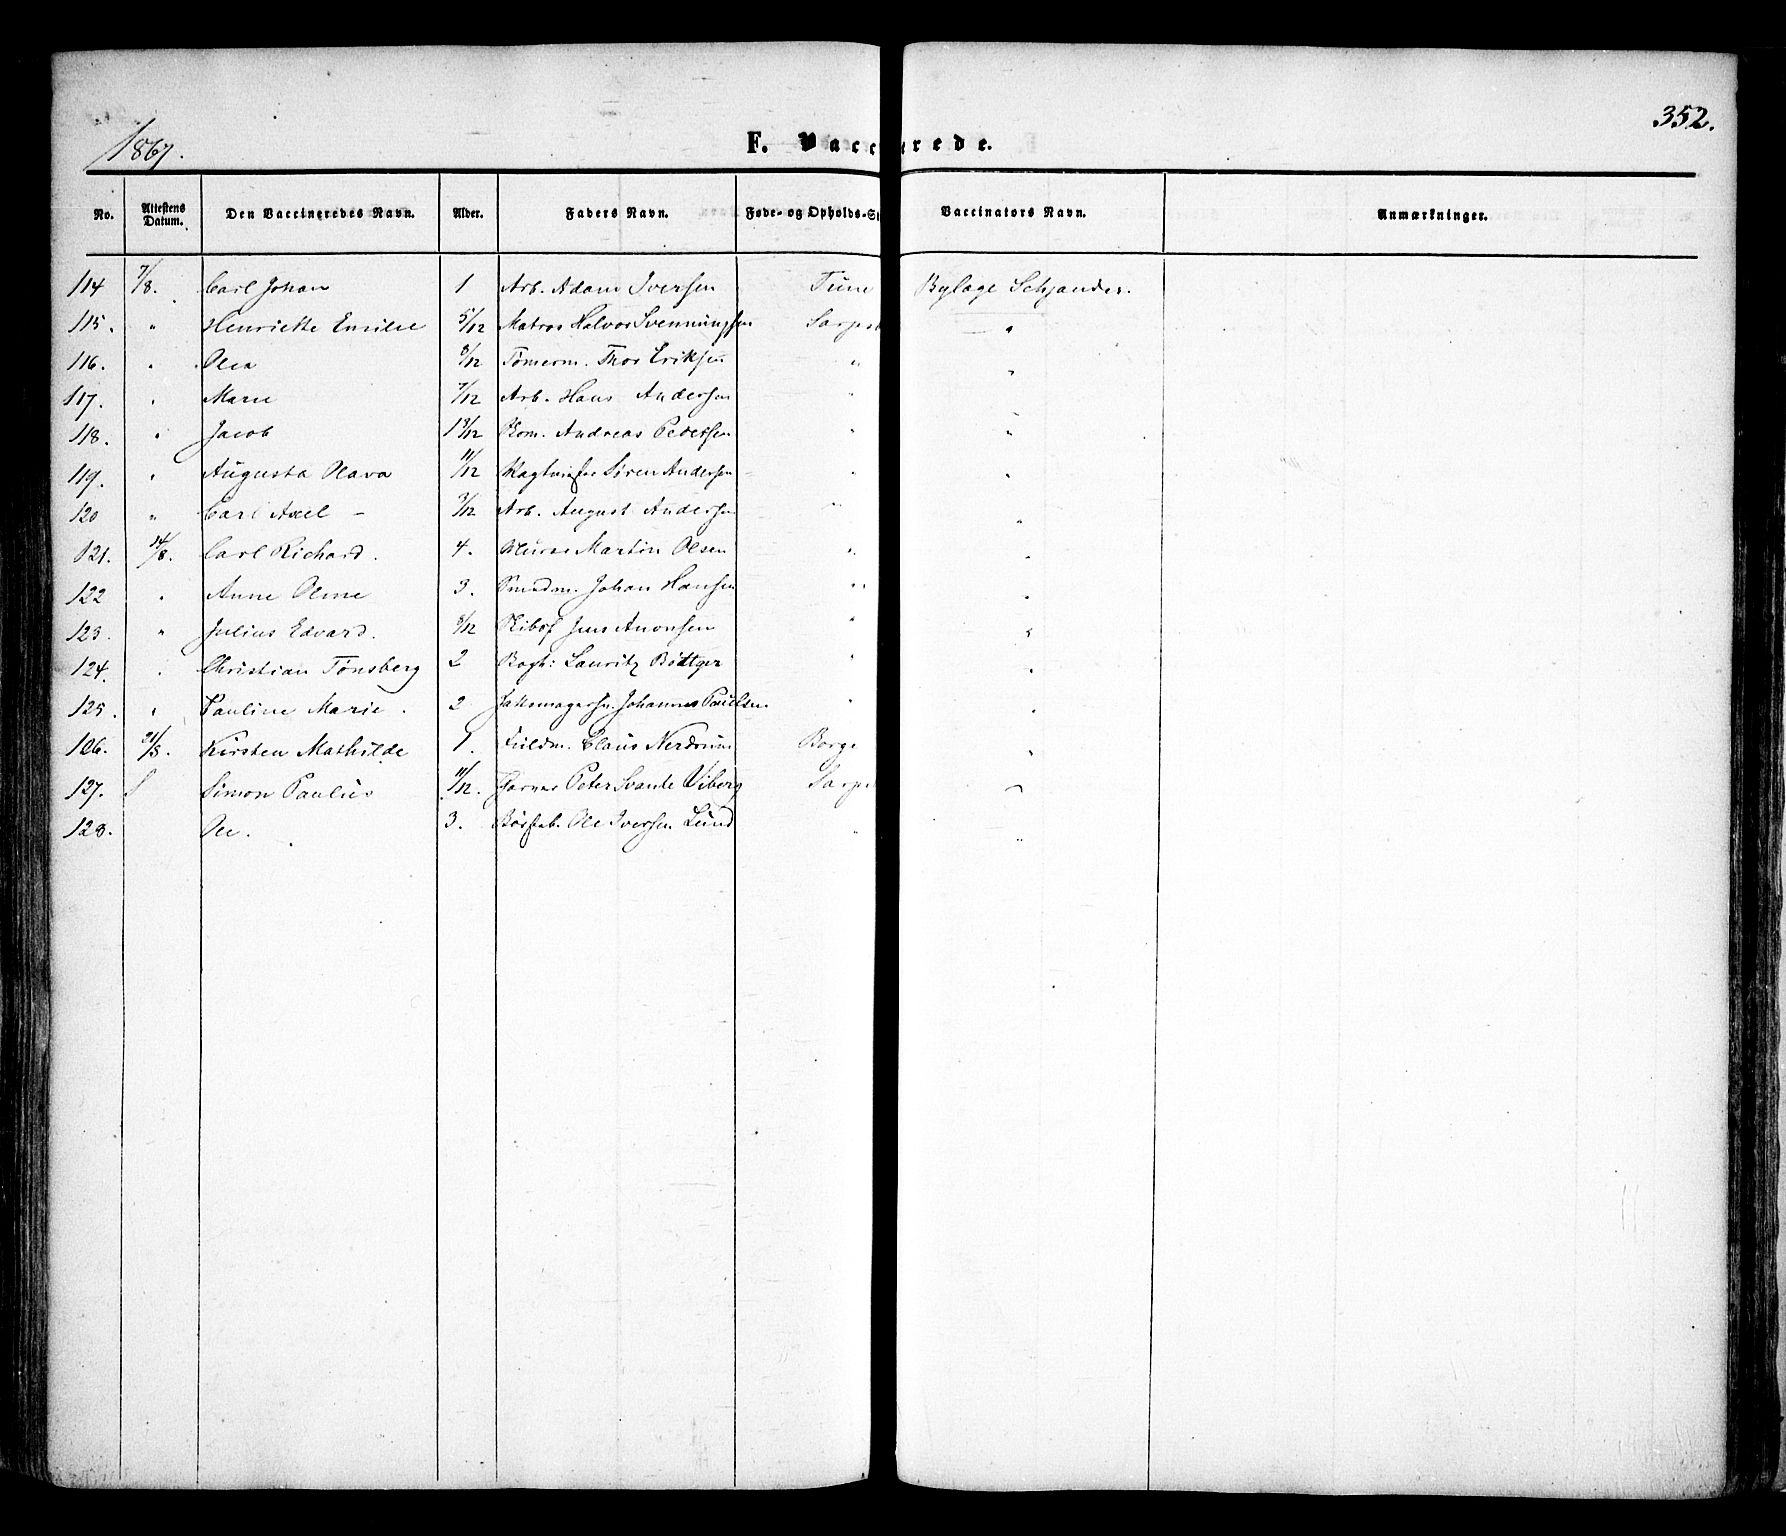 352.
1867.
F. Vacc rede.
No. Attestens Datum. Den Vaccineredes Navn. Alder. Faders Navn. Føde- og Opholds-S Vaccinators Navn. Anmærkninger.
114 7/8. Carl Johan 1 Arb. Adam Iversen Tune Bylæge Schjander.
115. " Henriette Emilie 5/12 Matros Halvor Svenningsen Sarpsb "
116. " Olea 8/12 Tømerm. Thor Eriksen " "
117. " Marie 7/12 Arb. Hans Andersen " "
118. " Jacob 13/12 Kom. Andreas Pedersen " "
119. " Augusta Olava 11/12 Søren Andersen " "
120 " Carl Axel - 3/12 Arb. August Andersen " "
121. 14/8. Carl Richard. 4. Murer Martin Olsen " "
122 " Anne Oline 3. Johan Hansen " "
123. " Julius Edvard. 8/12 Jens Anonsen " "
124. " Christian Tønsberg 2 Bogh: Lauritz Bøttger " "
125. " Pauline Marie. 2 Johannes Paulsen " "
106. 21/8. Kirsten Mathilde 1. Fuldm. Claus Nerdrum Borge "
127. Simon Paulus 11/12. Peter Svante Viberg Sarpsb "
128. Ole. 3. Ole Iversen Lund " "